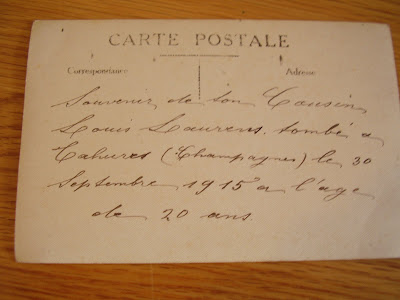 CARTE POSTALE
Correspondance Adresse
Souvenir de ton Cousin
Louis Laurens. tombé a
Tahures (Champagnes) le 30
Septembre 1915 a l'age
de 20 ans